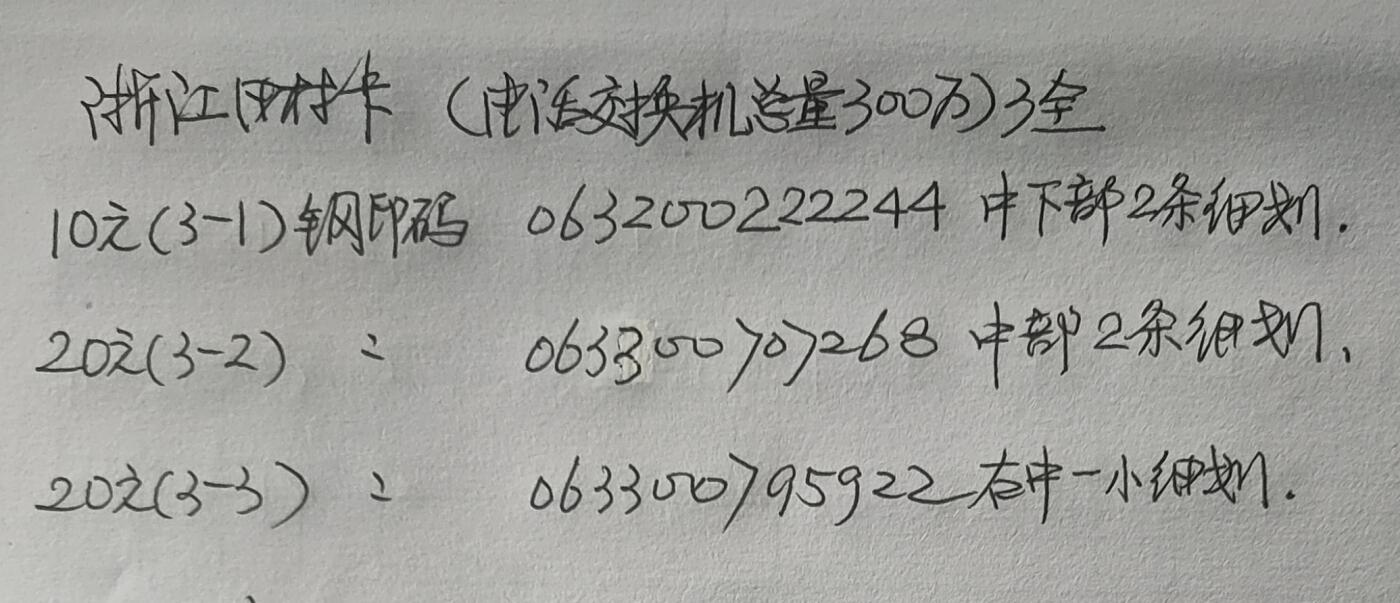 浙江田村卡（电话交换机总量300万）3全
10元（3-1）钢印码 063200222244 中下部2条细划.
20元（3-2） 〃 063300707268 中部2条细划、
20元（3-3） 〃 063300795922 右中一小细划.